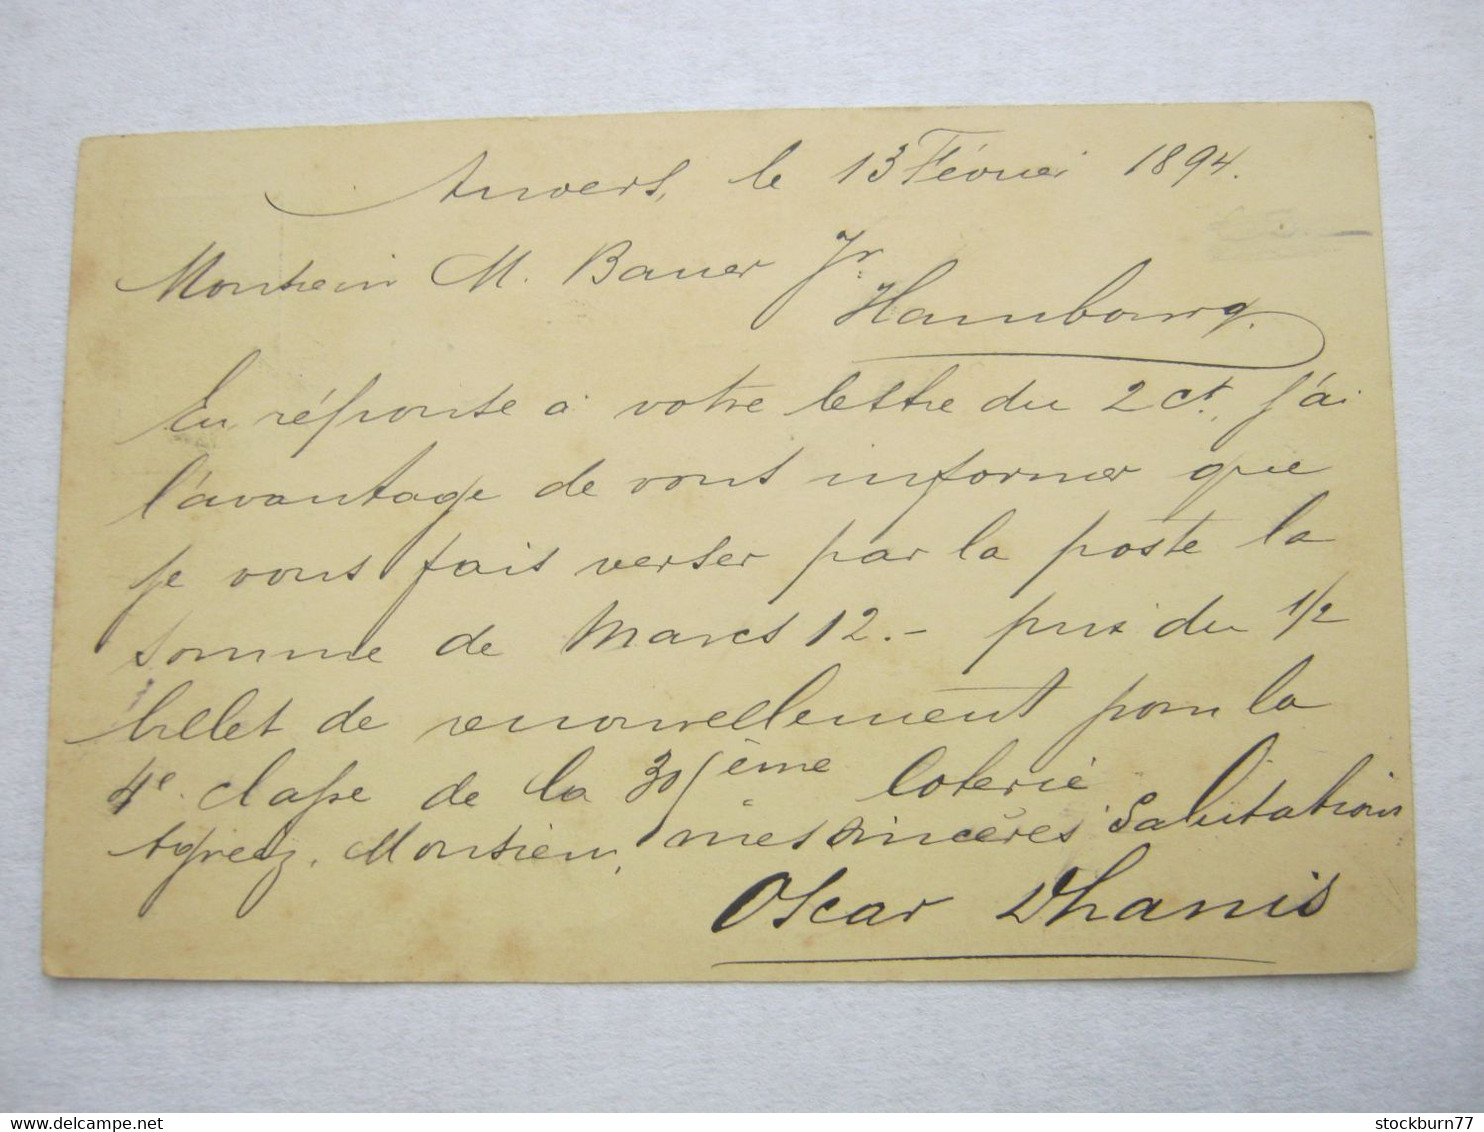 Anvers, le 13 Février 1894.
Monsieur M. Bauer Jr.
Hambourg.
En réponse à votre lettre du 2 ct, j'ai
l'avantage de vous informer que
je vous fais verser par la poste la
somme de Marcs 12.- prix du 1/2
billet de renouvellement pour la
4e classe de la 305ème loterie
Agréez, Monsieur, mes sincères salutations
Oscar Dhanis
www.delcampe.net
stockburn77